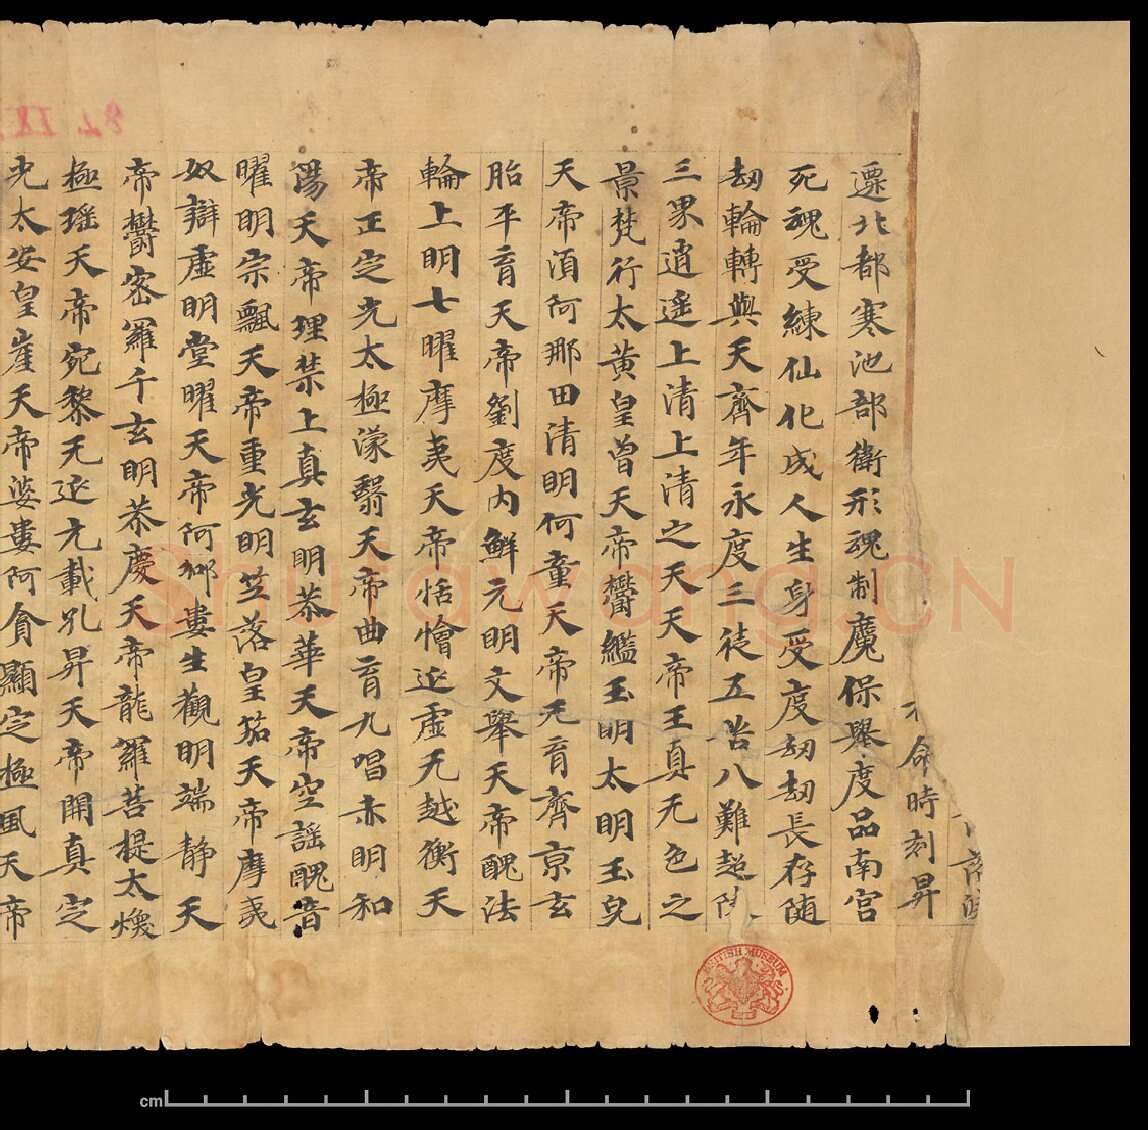 命時刻昇
遷北都寒池部衛形魂制魔保舉度品南宮
死魂受練仙化成人生身受度劫劫長存随
劫輪轉與天齊年永度三徒五苦八難超
三界逍遥上清上清之天天帝王真无色之
景梵行太黄皇曾天帝欎鑑玉明太明玉皃
天帝湏阿那田清明何童天帝无育齊京玄
胎平育天帝劉度内鮮元明文舉天帝醜法
輪上明七曜摩夷天帝恬憺近虚无越衡天
帝正定光太極濛翳天帝曲育九唱赤明和
陽天帝理禁上真玄明恭華天帝空謡醜音
曜明宗飄天帝重光明笠落皇笳天帝摩夷
奴辯虚明堂曜天帝阿郍婁生觀明端静天
帝欎密羅千玄明恭慶天帝龍羅菩提太焕
極瑶天帝宛黎无近元載孔昇天帝開真定
光太安皇崖天帝婆婁阿貪顯定極風天帝
8L. IX.
Shufawang.CN
BRITISH MUSEUM
cm